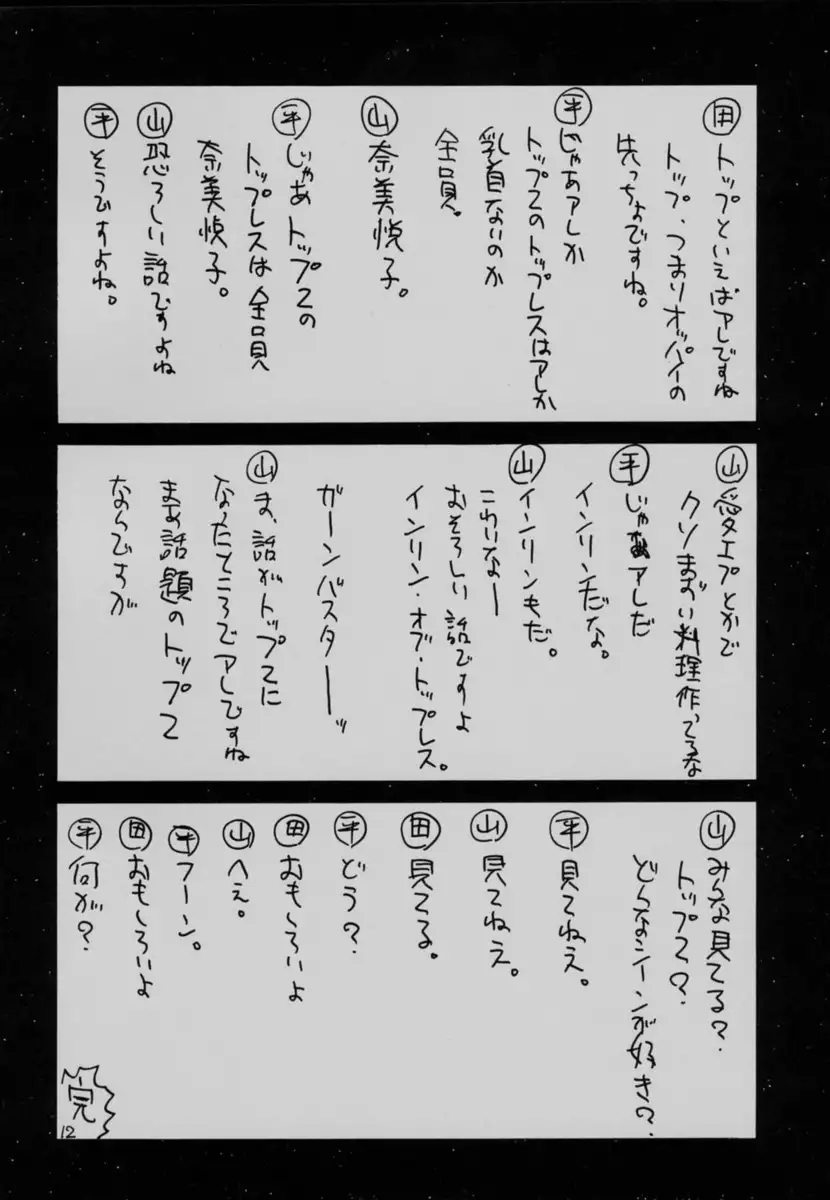 田 トップといえばアレですね
トップ、つまりオッパイの
先っちょですね。
平 じゃあアレか
トップ2のトップレスはアレか
乳首ないのか
全員。
山 奈美悦子。
平 じゃあトップ2の
トップレスは全員
奈美悦子。
山 恐ろしい話ですよね
平 そうですよね。
山 愛エプとかで
クソまずい料理作ってるな
平 じゃああアレだ
インリンだな。
山 インリンもだ。
こわいなー
おそろしい話ですよ
インリン・オブ・トップレス。
ガーンバスターーッ
山 ま、話がトップ2に
なったところでアレですね
まあ話題のトップ2
なんですが
山 みんな見てる?
トップ2?
どんなシーンが好き?
平 見てねえ。
山 見てねえ。
田 見てる。
平 どう?
田 おもしろいよ
山 へぇ。
平 フーン。
田 おもしろいよ
平 何が?
完
12